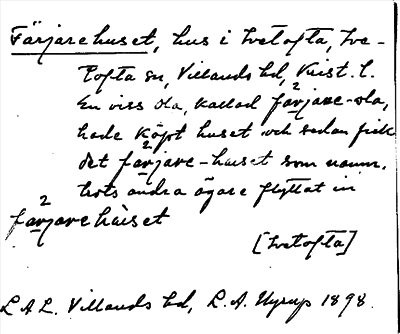 Färjarehuset, hus i Ivetofta, Ive-
tofta sn, Villands hd, Krist. l.
En viss Ola, kallad färjare-Ola,
hade köpt huset och sedan fick
det färjare-huset som namn,
trots andra ägare flyttat in
färjarehùset
[Ivetofta]
LAL. Villands hd, L. A. Nyrup 1898.